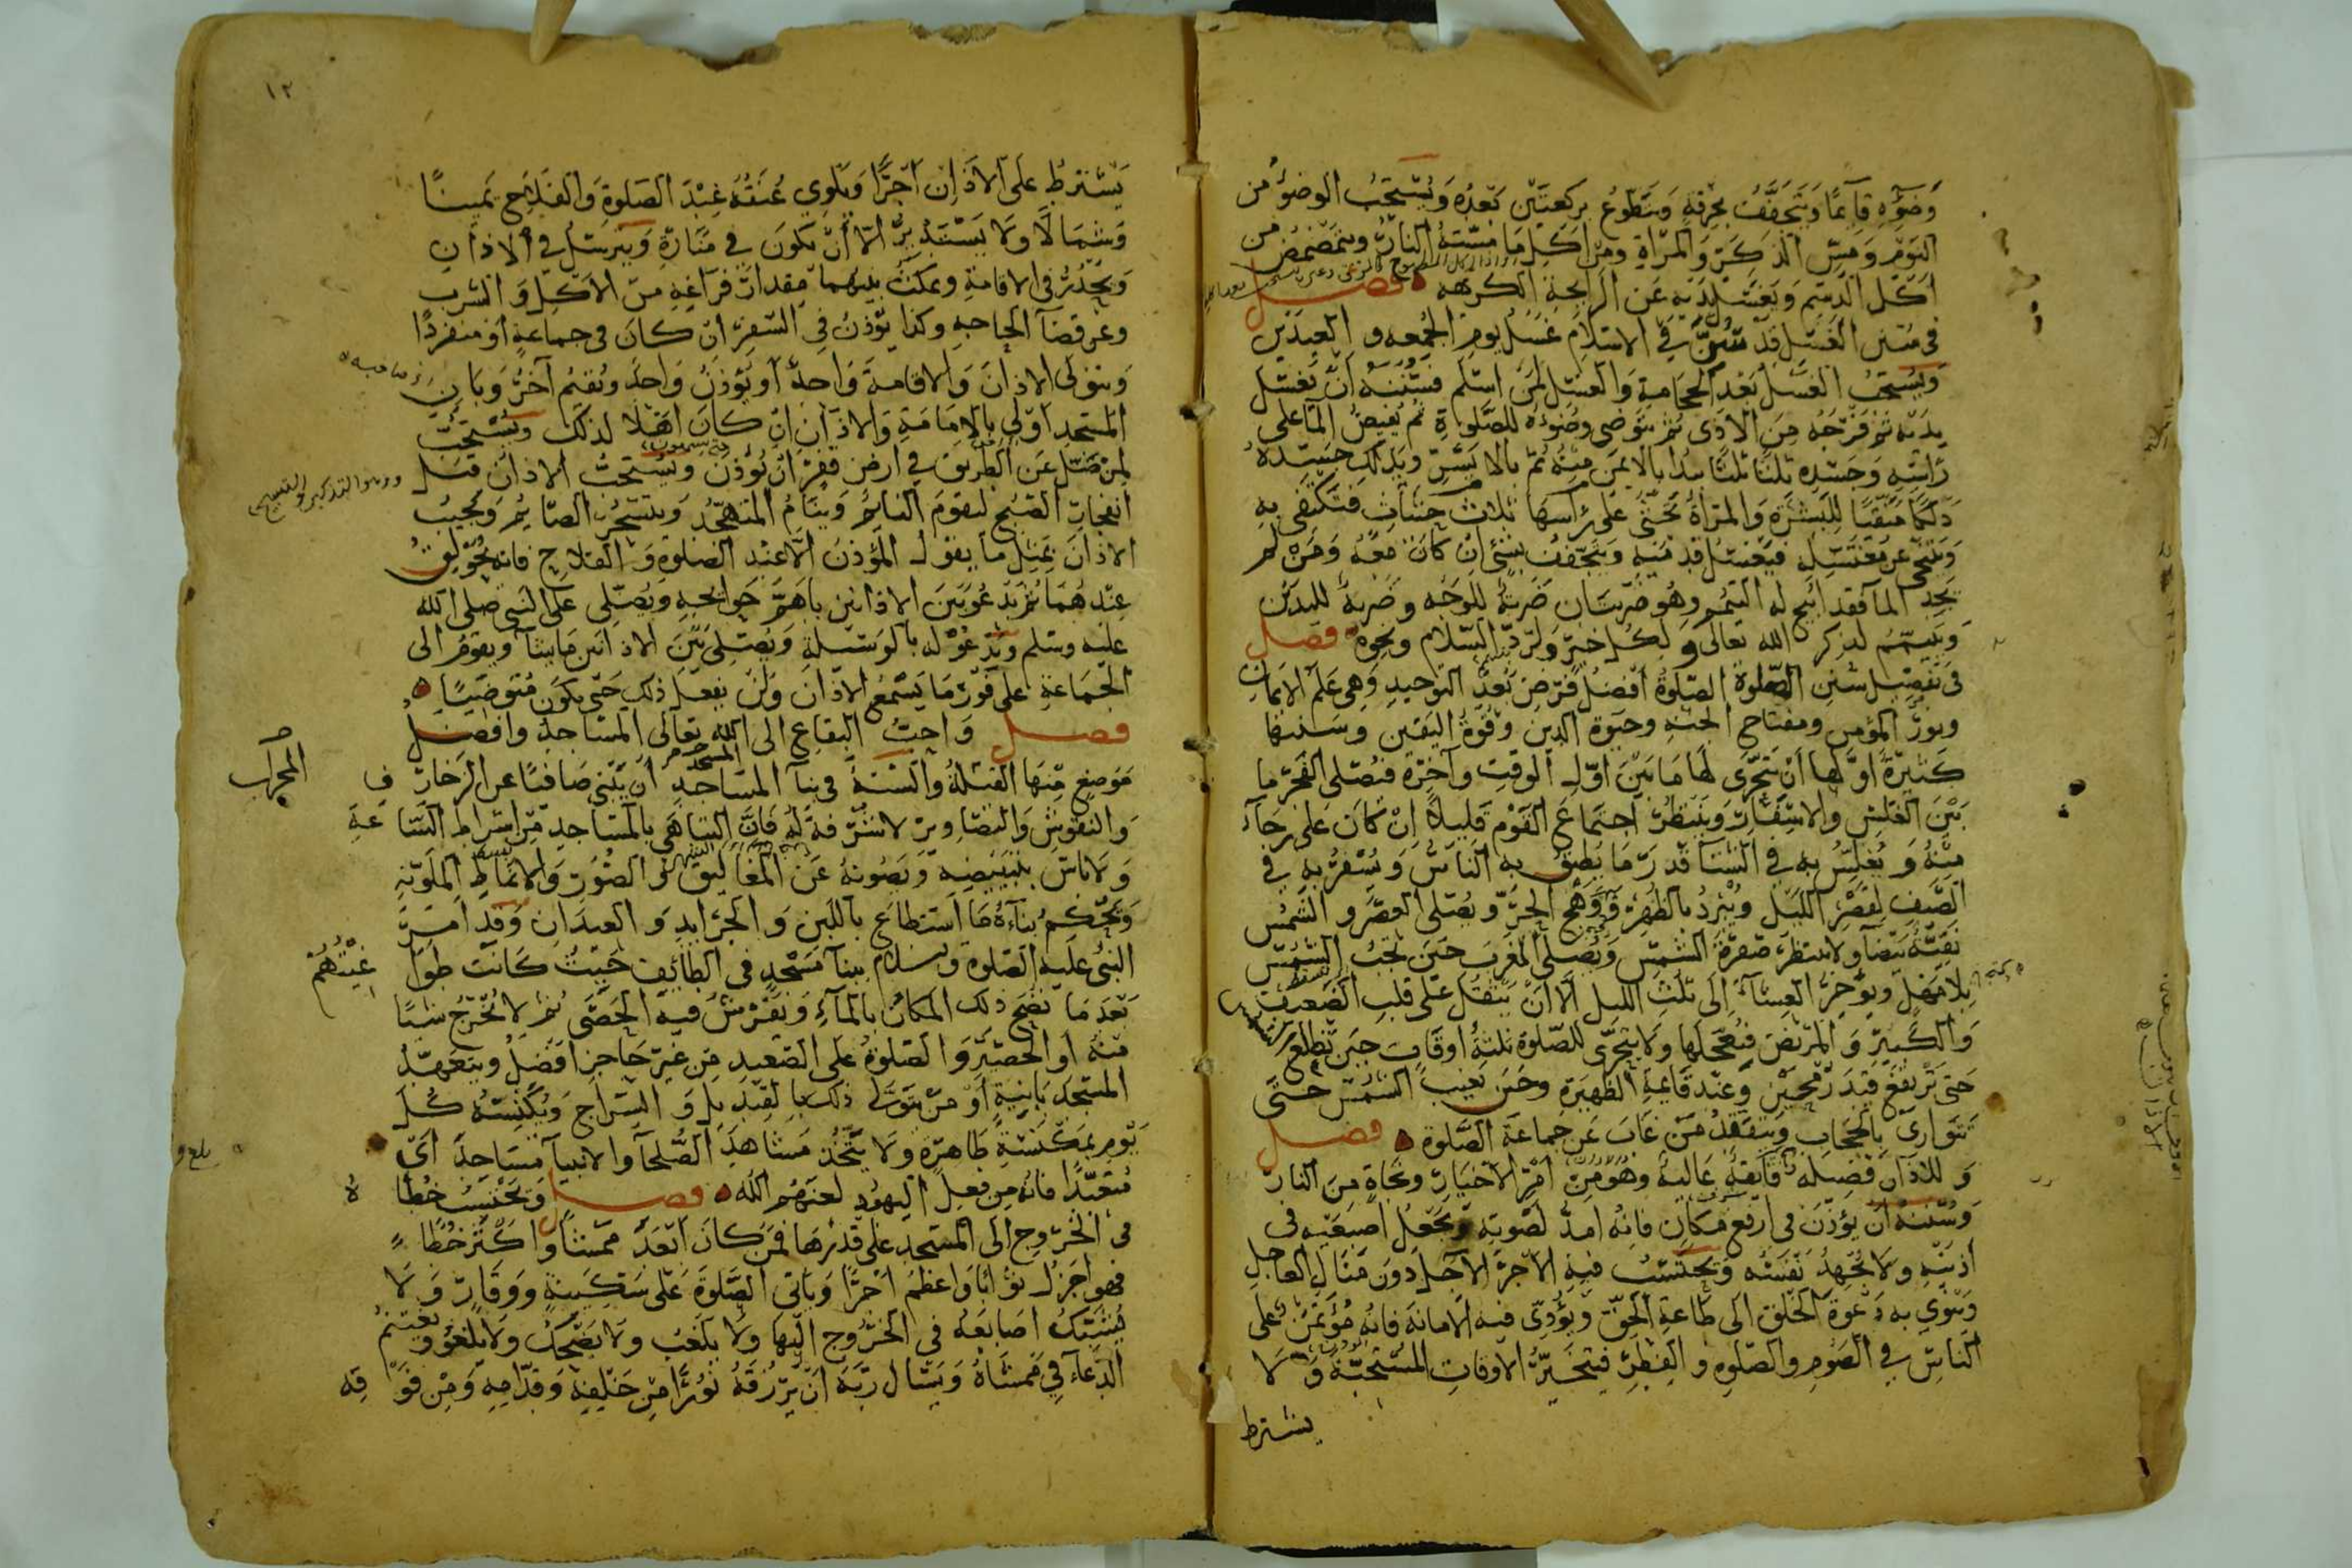 وضوءه قائما ويتجفف بخرقة ويتطوع بركعتين بعده ويستحب الوضوء من
النوم ومس الذكر والمرأة ومن أكل ما مسته النار ويتمضمض من
أكل الدسم ويغسل يديه عن الرائحة الكريهة فصل
في سنن الغسل قد سن في الاسلام غسل يوم الجمعه و العيدين
ويستحب الغسل بعد الحجامة والغسل لمن اسلم فسننه أن يغسل
يديه ثم فرجه من الأذى ثم يتوضى وضوءه للصلوة ثم يفيض الماء على
رأسه وجسده ثلثا ثلثا يبدا بالايمن منه ثم بالايسر ويدلك جسده
دلكا منقيا للبشرة والمرأة تحثي على رأسها ثلاث حثيات فتكتفي به
ويتنحى عن مغتسله فيغسل قدميه ويتجفف بشئ ان كان معه ومن لم
يجد الماء فقد ابيح له التيمم وهو ضربتان ضربة للوجه وضربة لليدين
ويتيمم لذكر الله تعالى و لكل خير ولرد السلام ونحوه فصل
في تفصيل سنن الصلوة الصلوة أفضل فرض بعد التوحيد وهي علم الايمان
ونور المؤمن ومفتاح الجنه وحيوة الدين وقوة اليقين وسننها
كثيرة اولها أن يتحرى لها ما بين اول الوقت وآخره فيصلى الفجر ما
بين الغلس والاسفار وينتظر اجتماع القوم قليلا إن كان على رجاء
منه و يغلس به في الشتاء قدر ما يطيق به الناس ويسفر به في
الصيف لقصر الليل ويبرد بالظهر في وهج الحر ويصلى العصر و الشمس
نقية بيضا ولا ينتظر صفرة الشمس ويصلى المغرب حين تجب الشمس
بلا مهل ويؤخر العشاء إلى ثلث الليل الا أن يثقل على قلب الضعيف
والكبير و المريض فيعجلها ولا يتحرى للصلوة ثلثة أوقات حين تطلع
حتى ترتفع قيد رمحين وعند قائمة الظهيرة وحين تغيب الشمس حتى
تتوارى بالحجاب ويتفقد من غاب عن جماعة الصلوة فصل
و للاذان فضيله فائقة عالية وهو من امر الاخيار ونجاة من النار
وسننه أن يؤذن في ارفع مكان فانه امد لصوته ويجعل اصبعيه في
أذنيه ولا يجهد نفسه ويحتسب فيه الاجر الآجل دون منال العاجل
وينوي به دعوة الخلق الى طاعة الحق ويؤدي فيه الامانة فانه مؤتمن على
الناس في الصوم والصلوه و الفطر فيتخير الاوقات المستحبة و لا
يشترط
١٢
يشترط على الأذان اجرا ويلوي عنقه عند الصلوة والفلاح يمينا
وشمالا ولا يستدير الا أن يكون في منارة ويترسل في الاذان
ويحدر في الاقامة ويمكث بينهما مقدار فراغه من الأكل و الشرب
وعن قضاء الحاجه وكذا يؤذن في السفر ان كان في جماعة او منفردا
ويتولى الاذان والاقامة واحد أو يؤذن واحد ويقيم آخر وباني
المسجد أولى بالامامة والأذان ان كان اهلا لذلك ويستحب
لمن ضل عن الطريق في ارض قفر ان يؤذن ويستحب الاذان قبل
انفجار الصبح ليقوم النائم وينام المتهجد ويتسحر الصائم ويجيب
الاذان بمثل ما يقول المؤذن الا عند الصلوة و الفلاح فانه يحولق
عندهما ثم يدعو بين الاذانين باهم حوائجه ويصلى على النبي صلى الله
عليه وسلم ويدعو له بالوسيلة ويصلى بين الاذانين ما يشا ويقوم الى
الجماعة على فور ما يسمع الاذان ولن يفعل ذلك حتى يكون متوضئا
فصل واحب البقاع الى الله تعالى المساجد وافضل
موضع منها القبلة والسنة في بناء المساجد أن يبنى صافيا عن الزخارف
المحراب
والنقوش والتصاوير لا شرفة له فان التباهي بالمساجد من اشراط الساعة
ولا باس بتبييضه ويصونه عن المغاليق و الصور والانماط الملونه
ويحكم بناءه ما استطاع باللبن و الجرايد و العيدان وقد امر
النبي عليه الصلوة والسلام ببناء مسجد في الطائف حيث كانت طواغيتهم
بعد ما نضح ذلك المكان بالماء ويفرش فيه الحصى ثم لا يخرج شيئا
منه او الحصير و الصلوة على الصعيد من غير حاجز افضل ويتعهد
المسجد بانيه أو من يتولى ذلك بالقنديل و السراج ويكنسه كل
يوم بمكنسة طاهرة ولا يتخذ مشاهد الصلحاء والانبياء مساجد اي
متعبدا فانه من فعل اليهود لعنهم الله فصل ويحتسب خطاه
في الخروج الى المسجد على قدرها فمن كان ابعد ممشا واكثر خطا
فهو اجزل ثوابا واعظم اجرا ويأتي الصلوة على سكينة ووقار ولا
يشبك اصابعه في الخروج اليها ولا يلعب ولا يضحك ولا يلغو ويغتنم
الدعاء في ممشاه ويسال ربه ان يرزقه نورا من خلفه وقدامه ومن فوقه